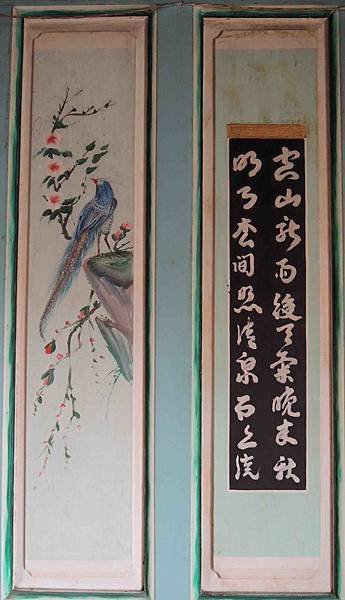 空山新雨後天氣晚來秋
明月松間照清泉石上流